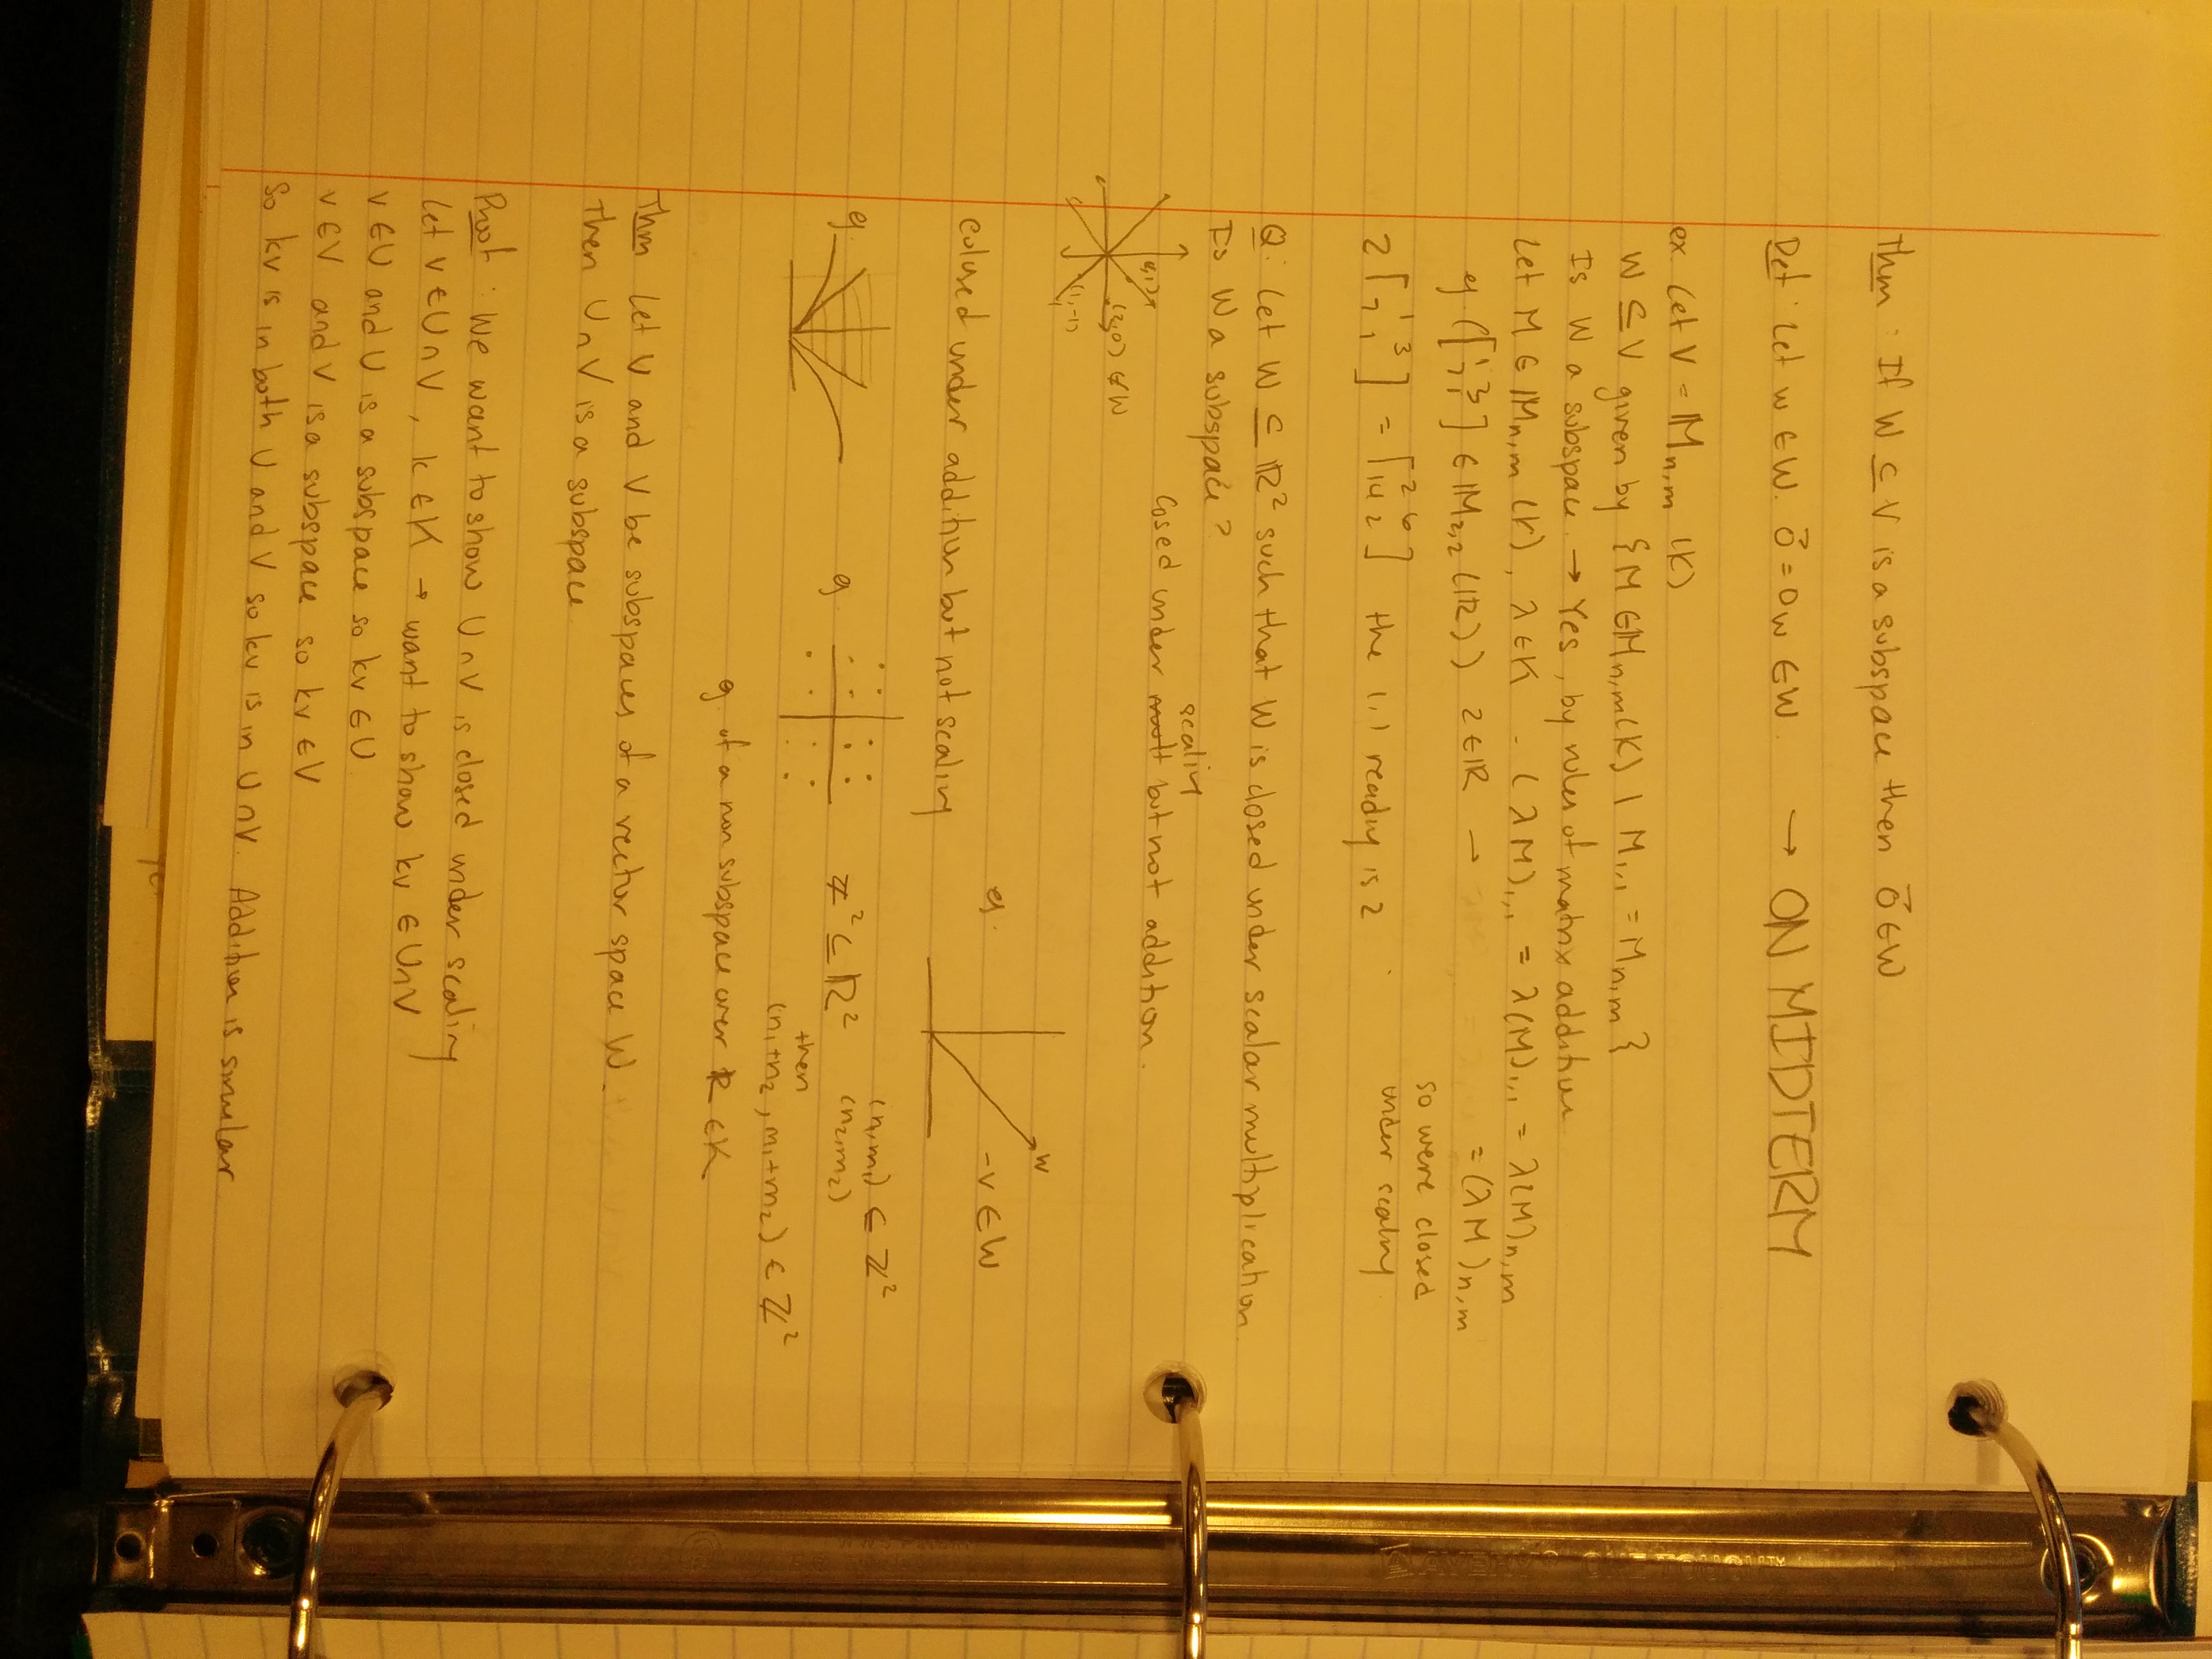 Thm : If W ⊆ V is a subspace then 0⃗ ∈ W
Def : Let w ∈ W. 0⃗ = 0w ∈ W. → ON MIDTERM
ex Let V = Mn,m (K)
W ⊆ V given by { M ∈ Mn,m(K) | M1,1 = Mn,m }
Is W a subspace → Yes, by rules of matrix addition
Let M ∈ Mn,m (K), λ ∈ K. (λM)1,1 = λ(M)1,1 = λ(M)n,m
= (λM)n,m
eg. ([1 3
7 1] ∈ M2,2 (R)) 2 ∈ R →
so were closed
under scaling
2 [1 3
7 1] = [2 6
14 2] the 1,1 ready is 2
Q: Let W ⊆ R² such that W is closed under scalar multiplication.
Is W a subspace?
scaling
Closed under mult but not addition.
(1,1)
(2,0) ∉ W
(1,-1)
eg.
W
-v ∈ W
Colused under addition but not scaling
eg.
eg.
Z² ⊆ R²
(n1,m1) ∈ Z²
(n2,m2)
then
(n1+n2, m1+m2) ∈ Z²
eg. of a non subspace over R ∈ K
Thm Let V and V be subspaces of a vector space W.
Then U ∩ V is a subspace.
Proof : We want to show U ∩ V is closed under scaling
Let v ∈ U ∩ V, k ∈ K → want to show kv ∈ U∩V
v ∈ U and U is a subspace so kv ∈ U
v ∈ V and V is a subspace so kv ∈ V
So kv is in both U and V so kv is in U ∩ V. Addition is similar.
AVERY ONE TOUCH™